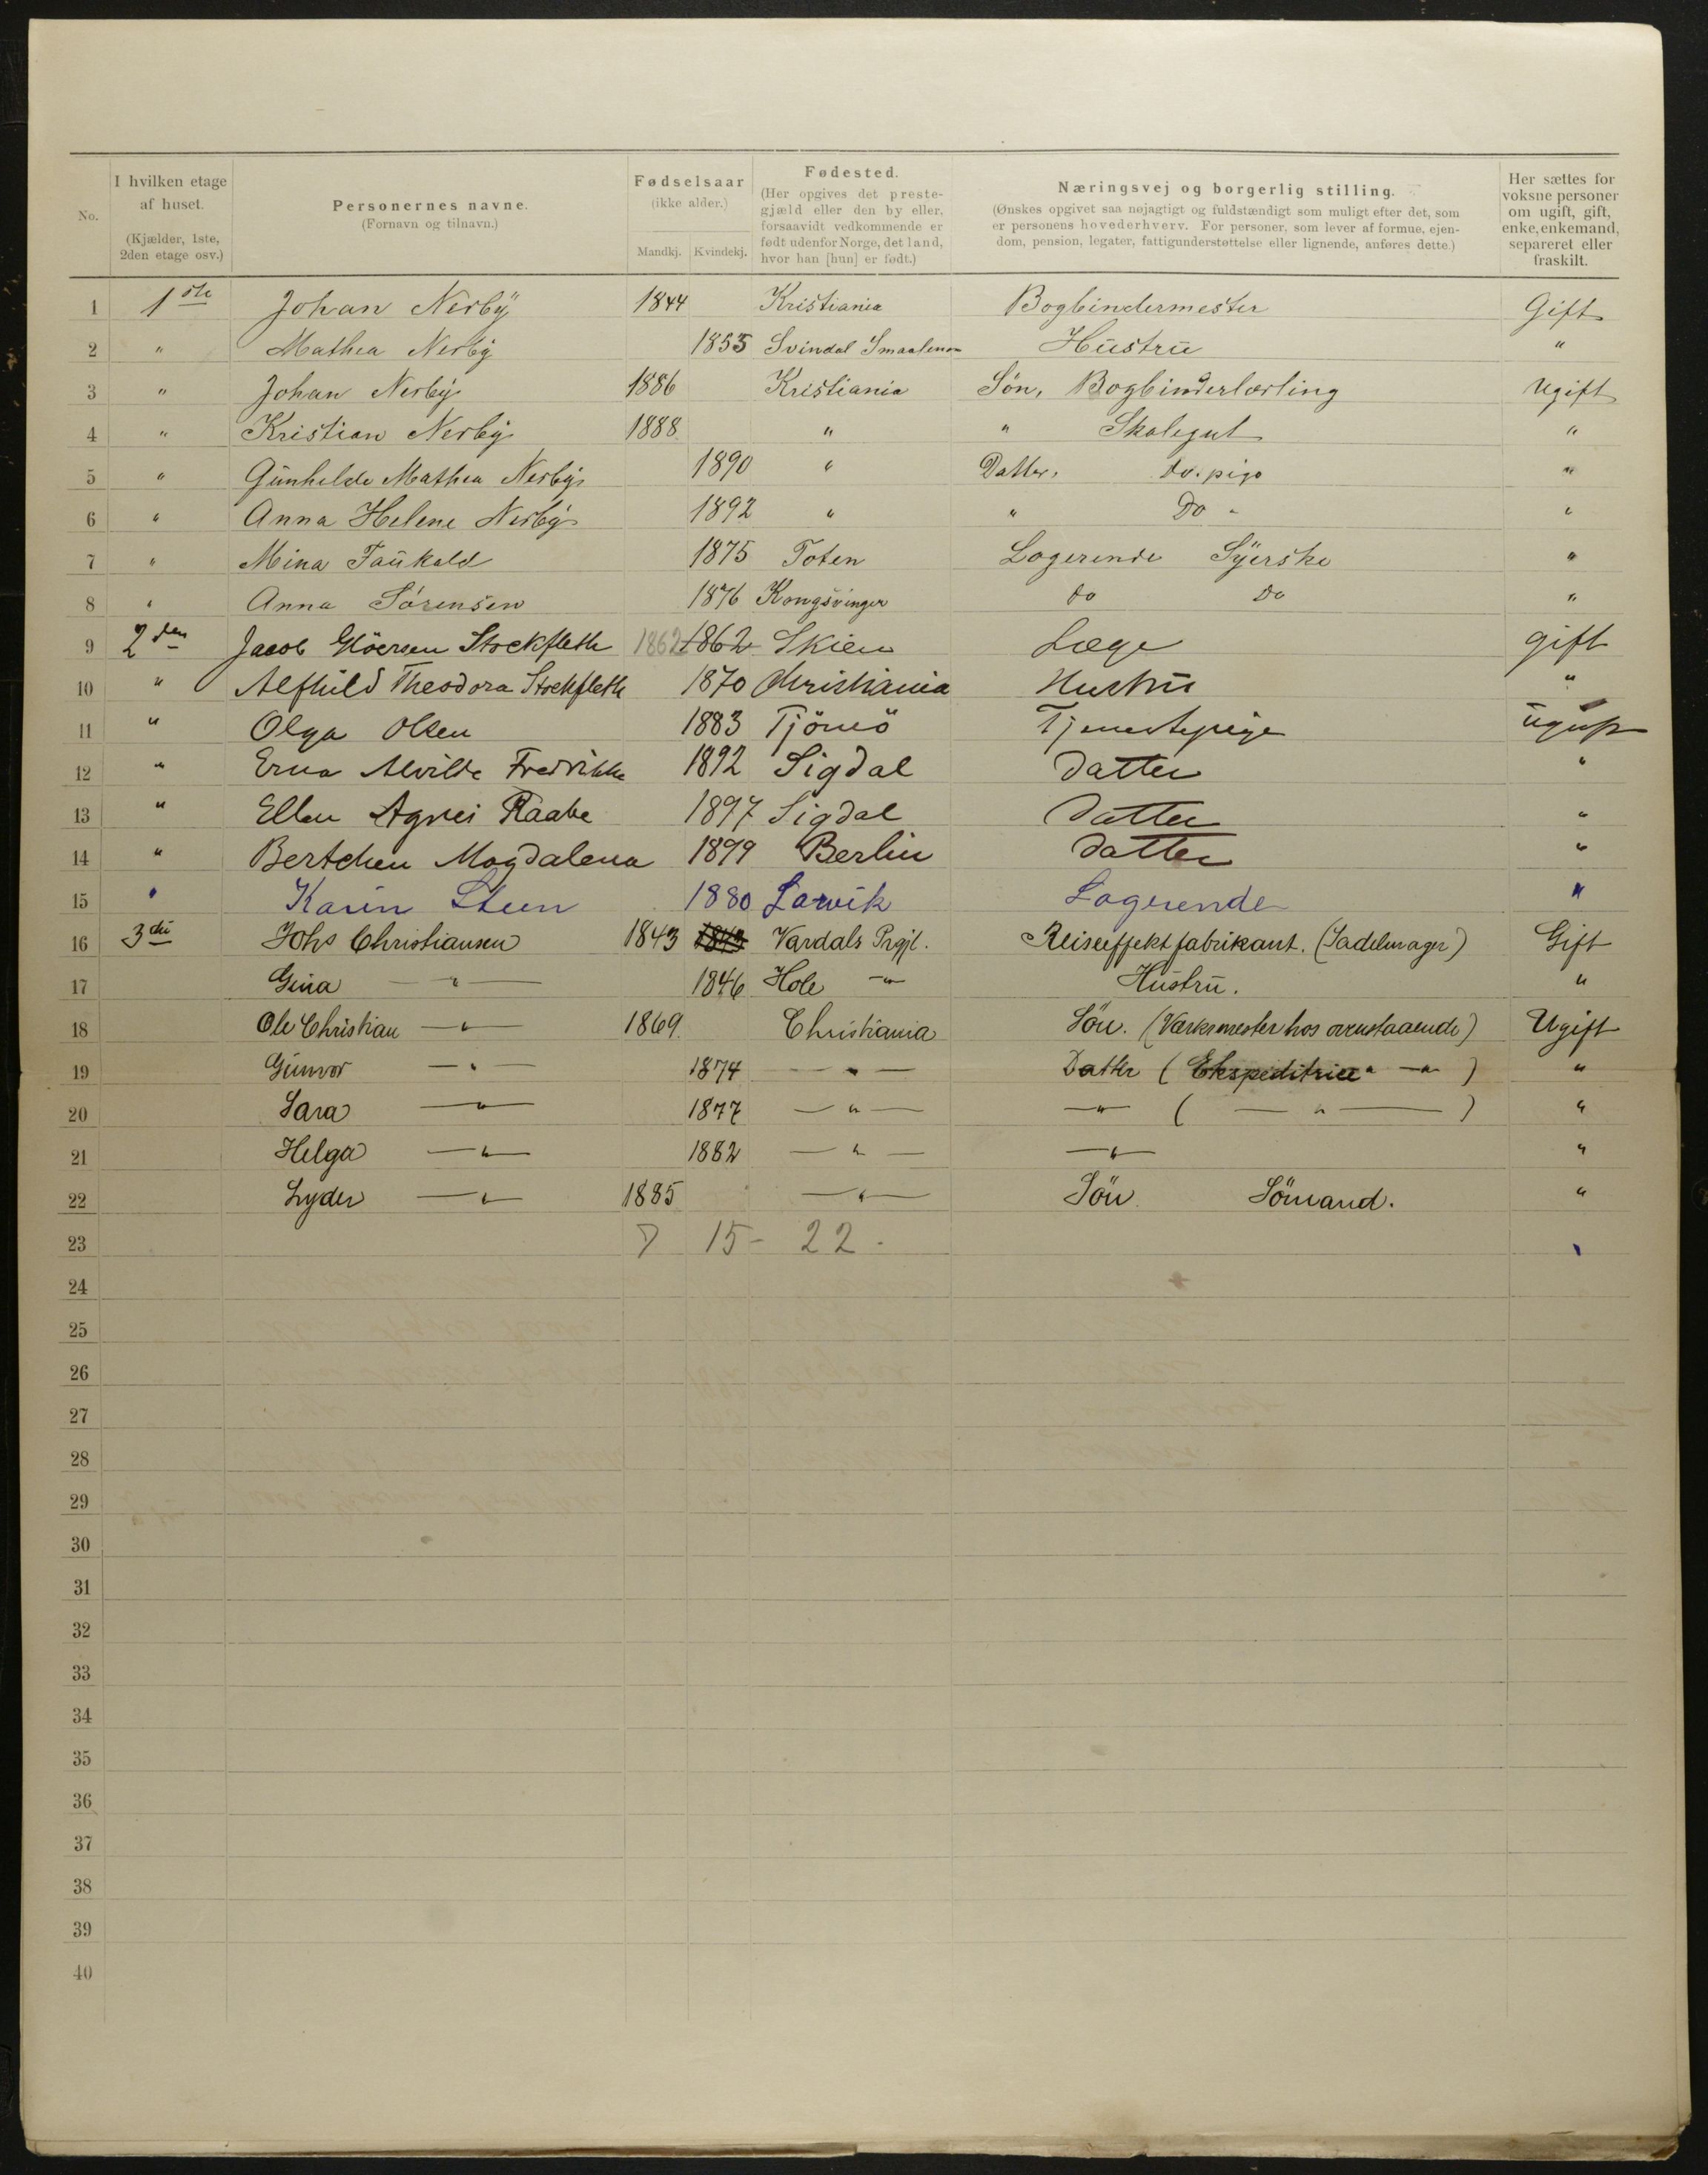 No. | I hvilken etage af huset. (Kjælder, 1ste, 2den etage osv.) | Personernes navne. (Fornavn og tilnavn.) | Fødselsaar (ikke alder.) Mandkj. Kvindekj. | Fødested. (Her opgives det prestegjæld eller den by eller, forsaavidt vedkommende er født udenfor Norge, det land, hvor han [hun] er født.) | Næringsvej og borgerlig stilling. (Ønskes opgivet saa nøjagtigt og fuldstændigt som muligt efter det, som er personens hovederhverv. For personer, som lever af formue, ejendom, pension, legater, fattigunderstøttelse eller lignende, anføres dette.) | Her sættes for voksne personer om ugift, gift, enke, enkemand, separeret eller fraskilt.
1 1ste Johan Nerby 1844 Kristiania Bogbindermester Gift
2 " Mathea Nerby 1853 Svindal Smaalenene Hustru "
3 " Johan Nerby 1886 Kristiania Søn, Bogbinderlærling Ugift
4 " Kristian Nerby 1888 " " Skolegut "
5 " Gunhilde Mathea Nerby 1890 " Datter, do. pige "
6 " Anna Helene Nerby 1892 " " Do " "
7 " Mina Faukald 1875 Toten Logerende Syerske "
8 " Anna Sørensen 1876 Kongsvinger do Do "
9 2den Jacob Gløersen Stockfleth 1862 1862 Skien Læge gift
10 " Alfhild Theodora Stockfleth 1870 Christiania Hustru "
11 " Olga Olsen 1883 Tjömö Tjenestepige ugift
12 " Erna Alvilde Fredrikke 1892 Sigdal Datter "
13 " Ellen Agnes Raabe 1897 Sigdal Datter "
14 " Bertchen Magdalena 1899 Berlin Datter "
15 " Karin Steen 1880 Larvik Logerende "
16 3die Johs Christiansen 1843 1843 Vardals Prgjl. Reiseeffektfabrikant. (Sadelmager) Gift
17 Gina — " — 1846 Hole —"— Hustru. "
18 Ole Christian — " — 1869 Christiania Sön. (Værksmester hos ovenstaaende) Ugift
19 Gunvor — " — 1874 — " — Datter (Ekspeditrice " —"—) "
20 Sara — " — 1877 — " — —"— ( — " — ) "
21 Helga — " — 1882 — " — —"— "
22 Lyder — " — 1885 — " — Sön Sömand. "
23 7 15 - 22 -
24
25
26
27
28
29
30
31
32
33
34
35
36
37
38
39
40